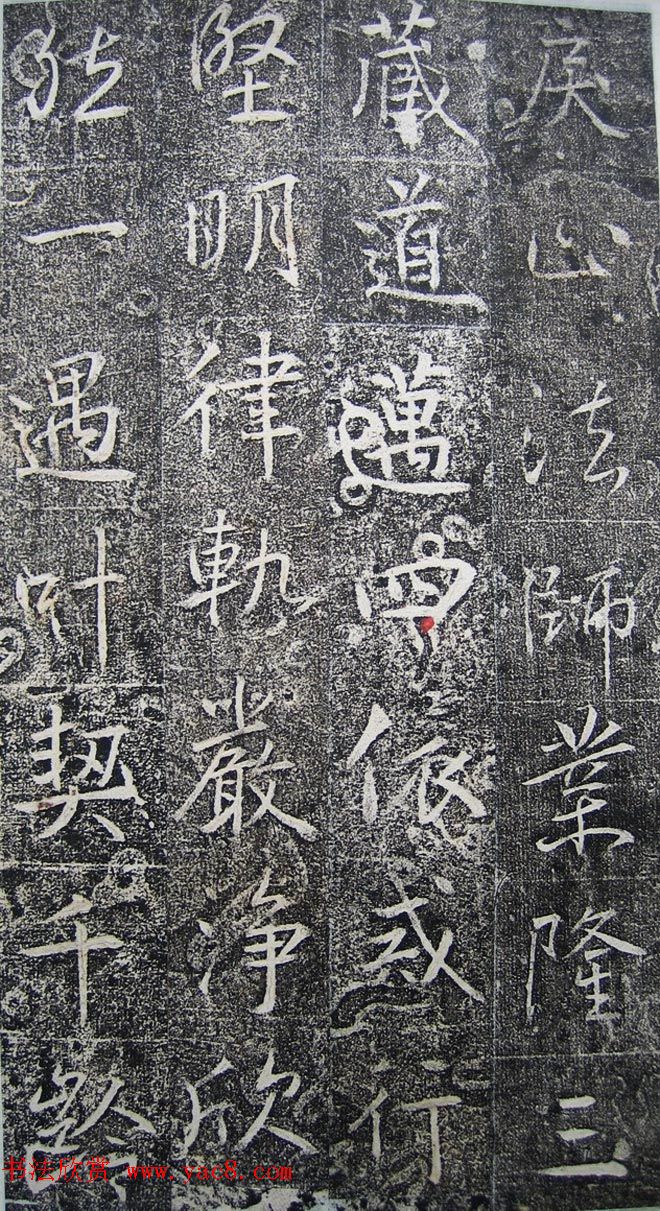 戾止法師業隆三
藏道邁四依或行
堅明律軌嚴淨欣
然一遇叶契千齡
书法欣赏 www.yac8.com